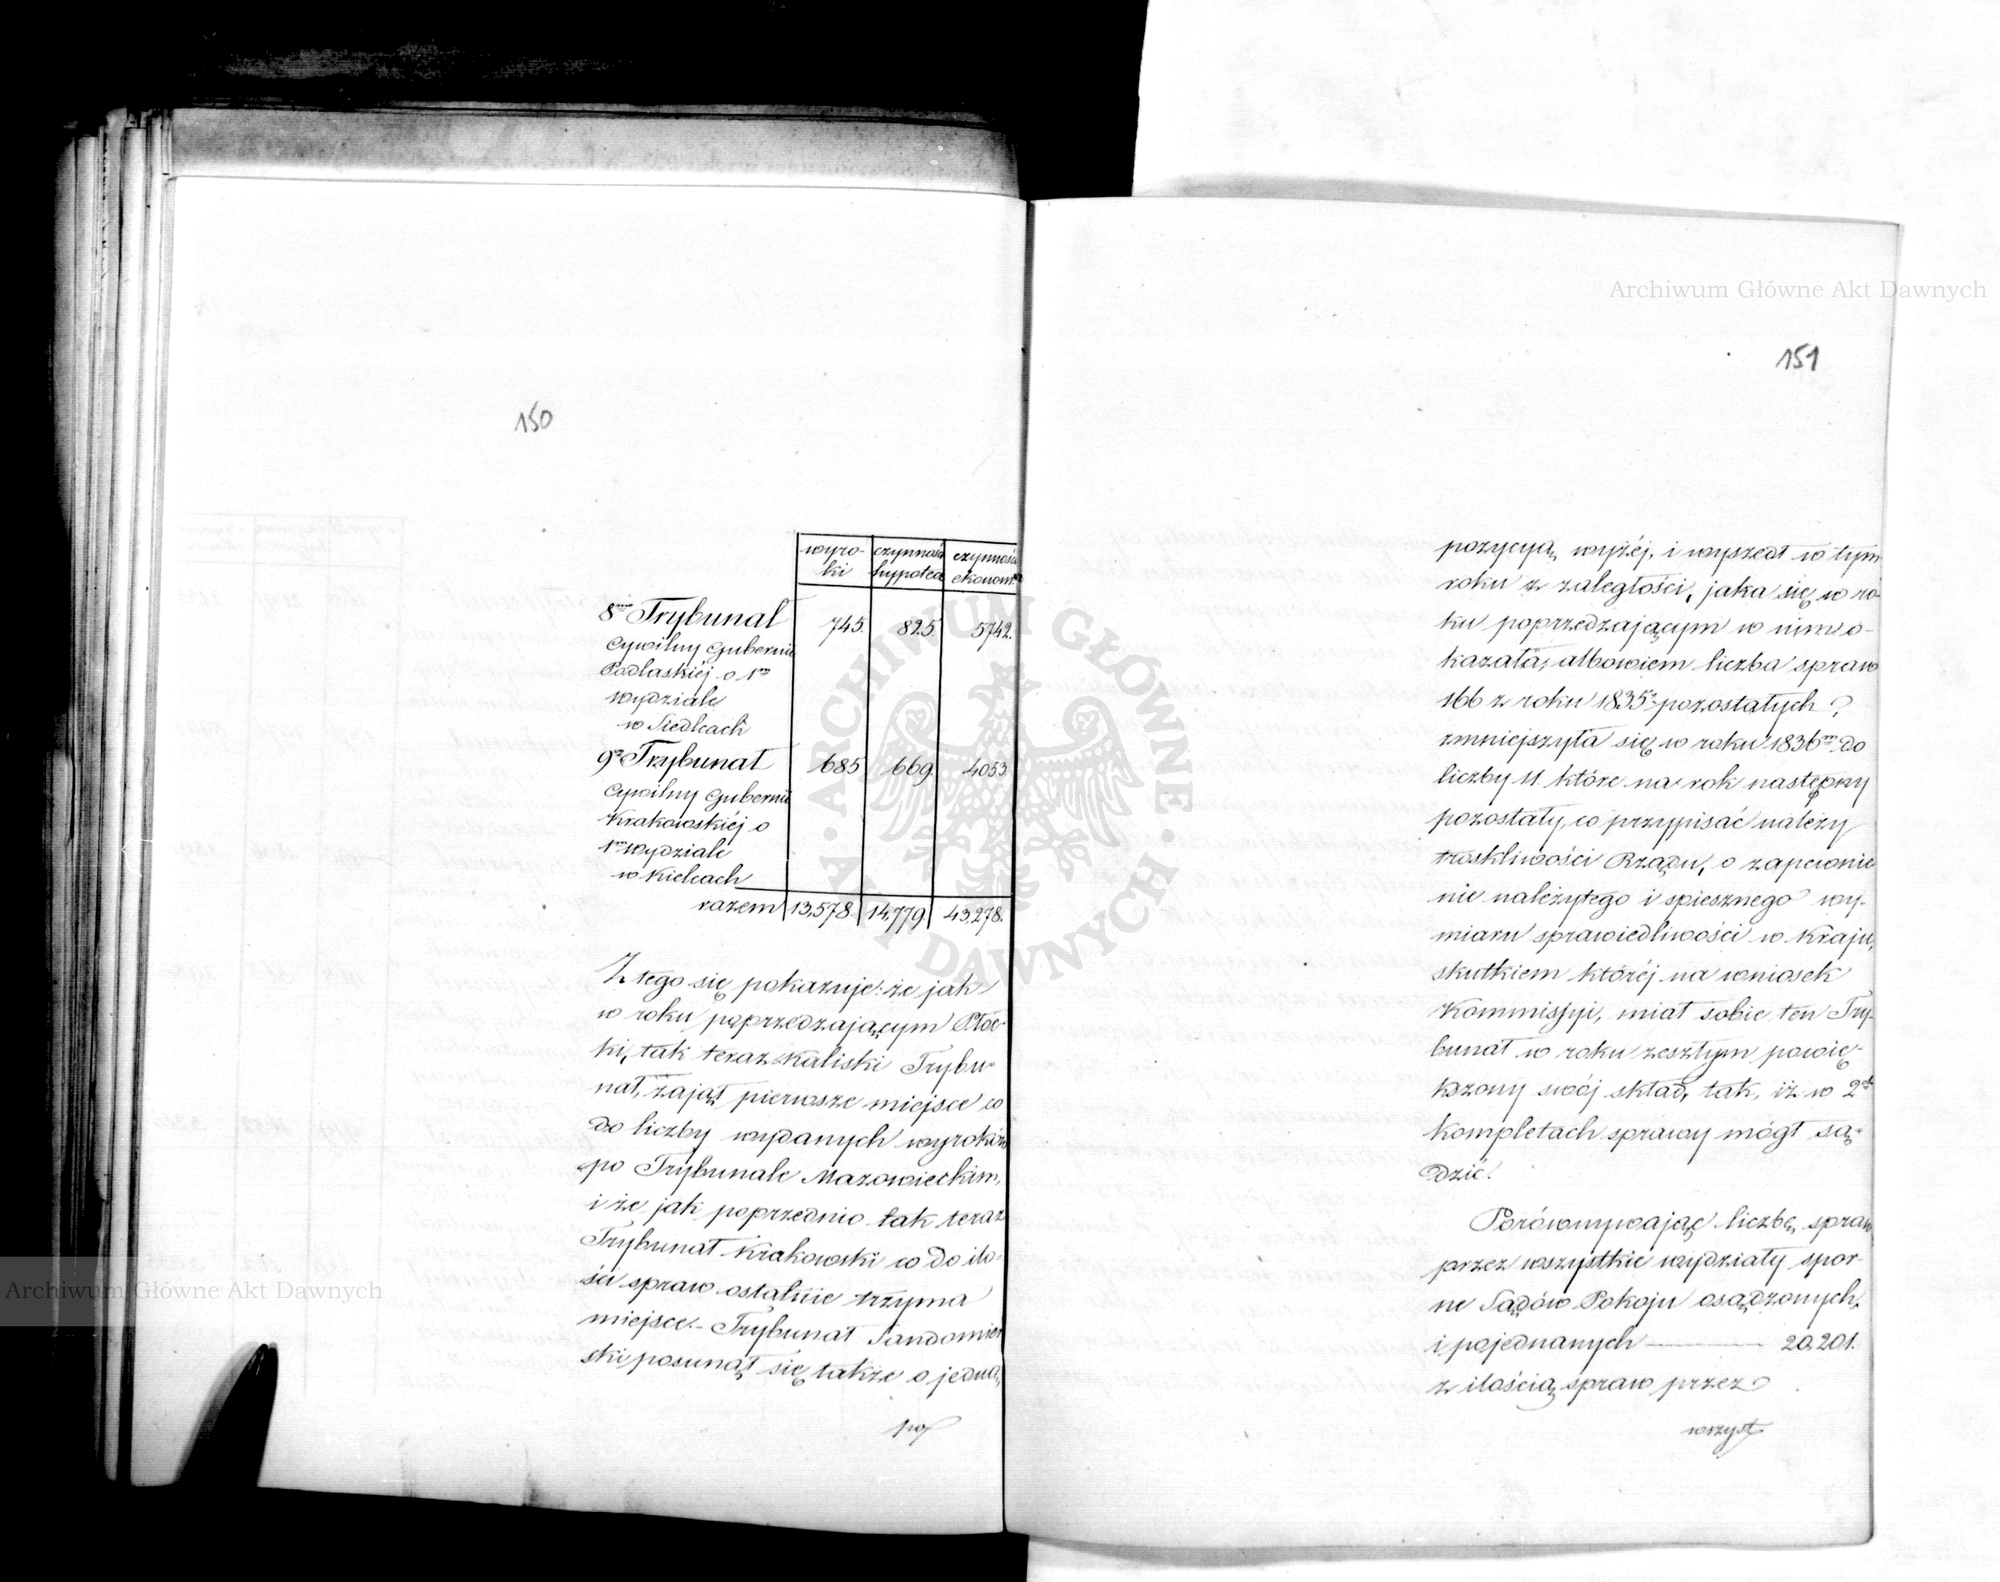 150
wyro- czynności czynności
ki hypotecz ekonom:
8me Trybunal 745. 825. 5742.
Cywilny Gubernii
Podlaskiéj o 1m
Wydziale
w Siedlcach
9e Trybunał 685 669. 4053
Cywilny Gubernii
Krakowskiéj o
1m Wydziale
w Kielcach
razem 13,578. 14,779. 43,278.
Z tego się pokazuje: że jak
w roku poprzedzającym Płoc-
ki, tak teraz Kaliski Trybu-
nał, zajął pierwsze miejsce co
do liczby wydanych wyroków
po Trybunale Mazowieckim,
i że jak poprzednio tak teraz
Trybunał Krakowski co do ilo-
ści spraw ostatnie trzyma
miejsce. - Trybunał Sandomier
ski posunął się także o jedną,
po
151
pozycyą wyżéj, i wyszedł w tym
roku z zaległości, jaka się w ro-
ku poprzedzającym w nim o-
kazała; albowiem liczba spraw
166 z roku 1835o pozostałych
zmniejszyła się w roku 1836m do
liczby 11. które na rok następny
pozostały, co przypisać należy
troskliwości Rządu, o zapewnie
nie należytego i spiesznego wy-
miaru sprawiedliwości w Kraju,
skutkiem któréj na wniosek
Kommissyi, miał sobie ten Try-
bunał w roku zeszłym powię-
kszony swój skład, tak, iż w 2ch
kompletach sprawy mógł są-
dzić.
Porównywając liczbę spraw
przez wszystkie wydziały spor-
ne Sądów Pokoju osądzonych,
i pojednanych — 20,201.
z ilością spraw przez
wszyst
Archiwum Główne Akt Dawnych
Archiwum Główne Akt Dawnych
ARCHIWUM GŁÓWNE AKT DAWNYCH